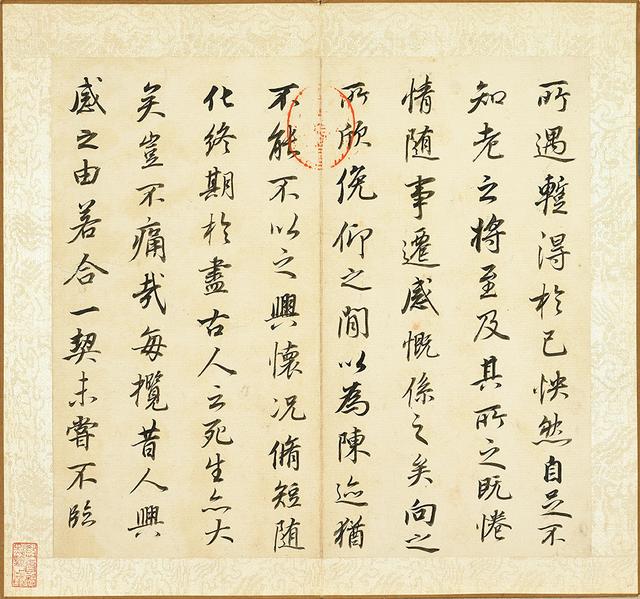 所遇暫得於己怏然自足不
知老之將至及其所之既惓
情随事遷感慨係之矣向之
所欣俛仰之間以為陳迹猶
不能不以之興懷况脩短随
化終期於盡古人云死生亦大
矣豈不痛哉每攬昔人興
感之由若合一契未嘗不臨